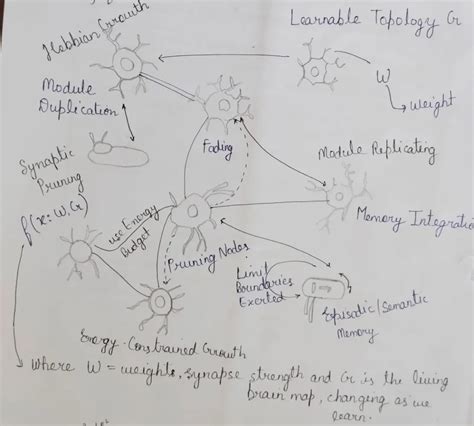 Hebbian Growth
Learnable Topology G
Module
Duplication
W
Weight
Synaptic
Pruning
Fading
Module Replicating
f(x: W, G)
use Energy
Budget
Memory Integration
Pruning Nodes
Limit
Boundaries
Exerted
Episodic/Semantic
Memory
Energy-Constrained Growth
Where W = weights, synapse strength and G is the living
brain map, changing as we
learn.